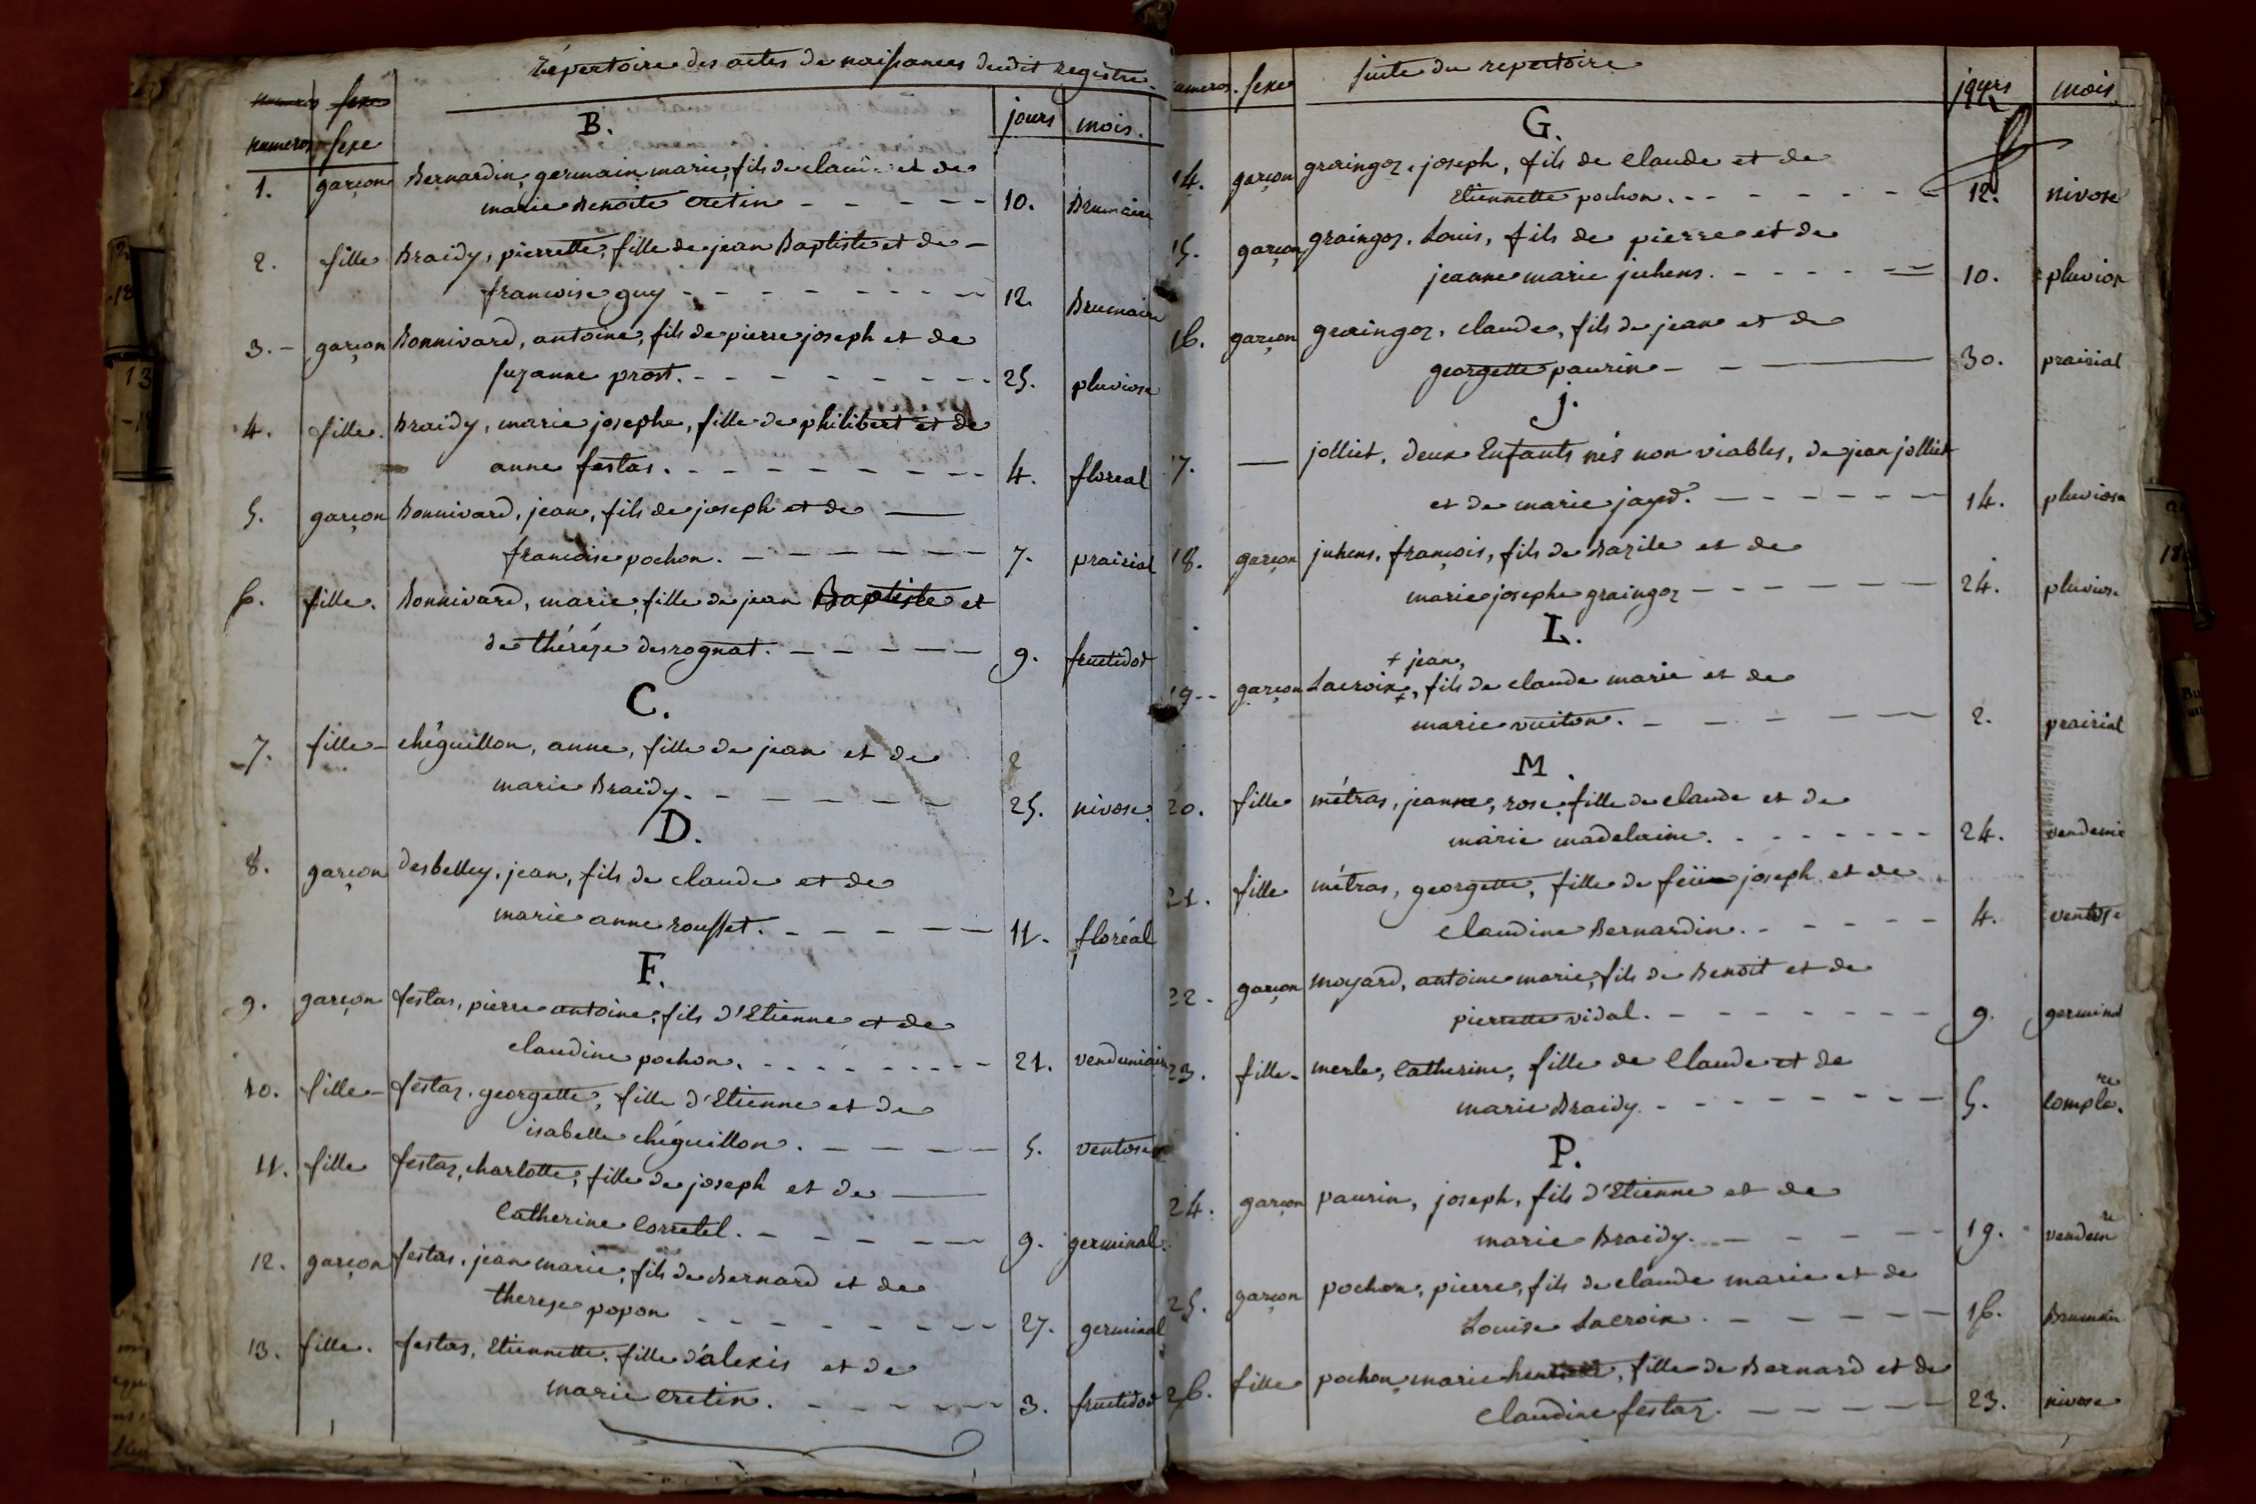 Répertoire des actes de naissances dudit registre
numeros sexe
numeros sexe jours mois.
B.
1. garçon Bernardin, germain marie, fils de claude et de
marie Benoite cretin - - - - - 10. Brumaire
2. fille Braidy, pierrette, fille de jean Baptiste et de -
francoise guy - - - - - - - 12. Brumaire
3. - garçon Bonnivard, antoine, fils de pierre joseph et de
suzanne prost. - - - - - - - 25. pluviose
4. fille. Braidy, marie josephe, fille de philibert et de
anne festas. - - - - - - - 4. floreal
5. garçon Bonnivard, jean, fils de joseph et de —
francoise pochon. - - - - - - 7. prairial
6. fille. Bonnivard, marie, fille de jean Baptiste et
de thérése desrognat. - - - - - 9. fructidor
C.
7. fille - chéguillon, anne, fille de jean et de
marie Braidy. - - - - - - 25. nivose
D.
8. garçon desbelley, jean, fils de claude et de
marie anne rousset. - - - - - 11. floréal
F.
9. garçon festas, pierre antoine, fils d'Etienne et de
claudine pochon. - - - - - - - - 21. vendemiaire
10. fille - festaz, georgette, fille d'Etienne et de
isabelle chéguillon. - - - - 5. ventose
11. fille festaz, charlotte, fille de joseph et de —
Catherine Corretel. - - - - - 9. germinal.
12. garçon festas, jean marie, fils de Bernard et de
therese popon - - - - - - - - 27. germinal
13. fille. festas, Etiennette, fille d'alexis et de
marie cretin. - - - - - - 3. fructidor
numeros. sexe suite du repertoire jours mois
G.
14. garçon graingoz, joseph, fils de Claude et de
Etiennette pochon. - - - - - - - 12. nivose
15. garçon graingoz, Louis, fils de pierre et de
jeanne marie juhens. - - - - - - 10. pluviose
16. garçon graingoz, Claude, fils de jean et de
georgette paurin - - — 30. prairial
j.
17. — jolliet, deux Enfants nés non viables, de jean jolliet
et de marie jayd. - - - - - - 14. pluviose
18. garçon juhens, françois, fils de Bazile et de
marie josephe graingoz - - - - - - 24. pluviose
L.
+ jean,
19 - - garçon Lacroix +, fils de claude marie et de
marie vuiton. - - - - - 2. prairial
M.
20. fille métras, jeanne, rose, fille de claude et de
marie madelaine. - - - - - - - 24. vendemie
21. fille métras, georgette, fille de feüe joseph et de
Claudine Bernardin. - - - - - 4. ventose
22. garçon moyard, antoine marie, fils de Benoit et de
pierrette vidal. - - - - - - - 9. germinal
23. fille - merle, Catherine, fille de Claude et de
marie Braidy. - - - - - - - - 5. comple.re
P.
24. garçon paurin, joseph, fils d'Etienne et de
marie Braidy. - - - - - - 19. vendemre
25. garçon pochon, pierre, fils de claude marie et de
Louise Lacroix. - - - - - - 16. Brumaire
26. fille pochon, marie, fille de Bernard et de
Claudine festaz. - - - - - - 23. nivose